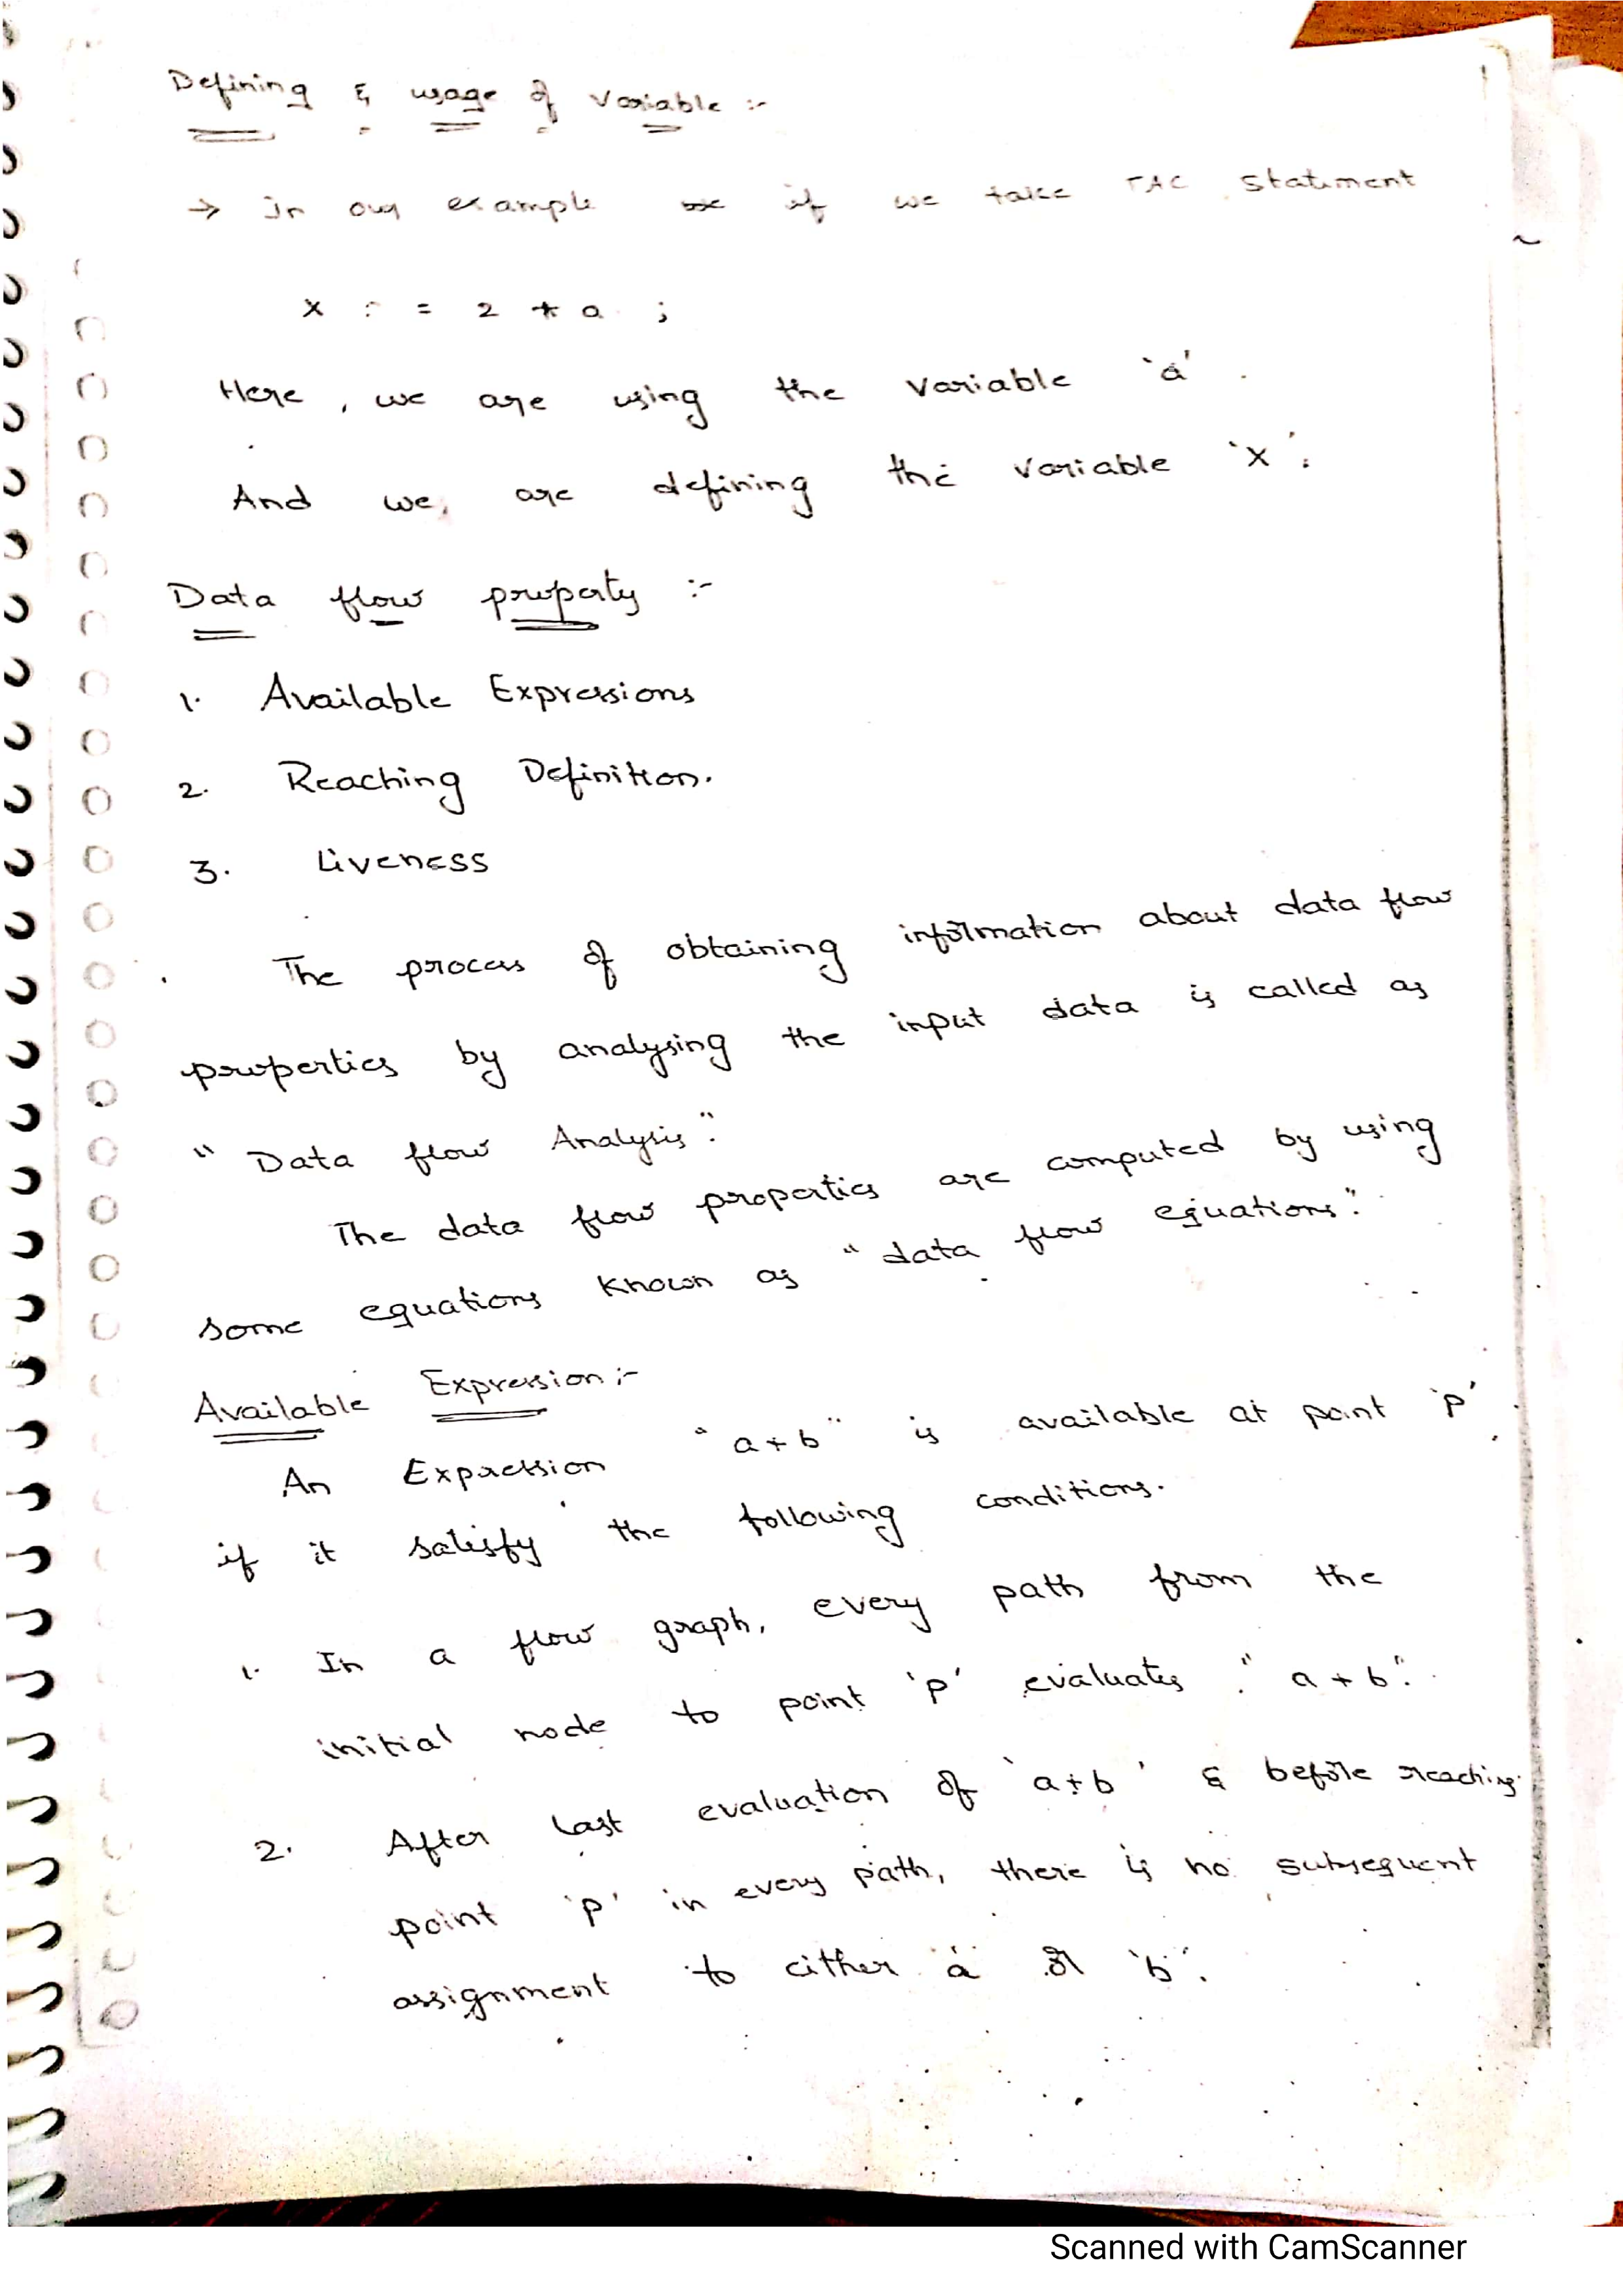 Defining & usage of variable :-
→ in our example if we take TAC statement
x : = 2 * a ;
Here, we are using the variable 'a'.
And we, are defining the variable 'x'.
Data flow property :-
1. Available Expressions
2. Reaching Definition.
3. Liveness
The process of obtaining information about data flow
properties by analysing the input data is called as
"Data flow Analysis".
The data flow properties are computed by using
some equations known as "data flow equations".
Available Expression :-
An Expression "a+b" is available at point 'p'.
if it satisfy the following conditions.
1. In a flow graph, every path from the
initial node to point 'p' evaluates "a+b".
2. After last evaluation of 'a+b' & before reaching
point 'p' in every path, there is no subsequent
assignment to either 'a' or 'b'.
Scanned with CamScanner